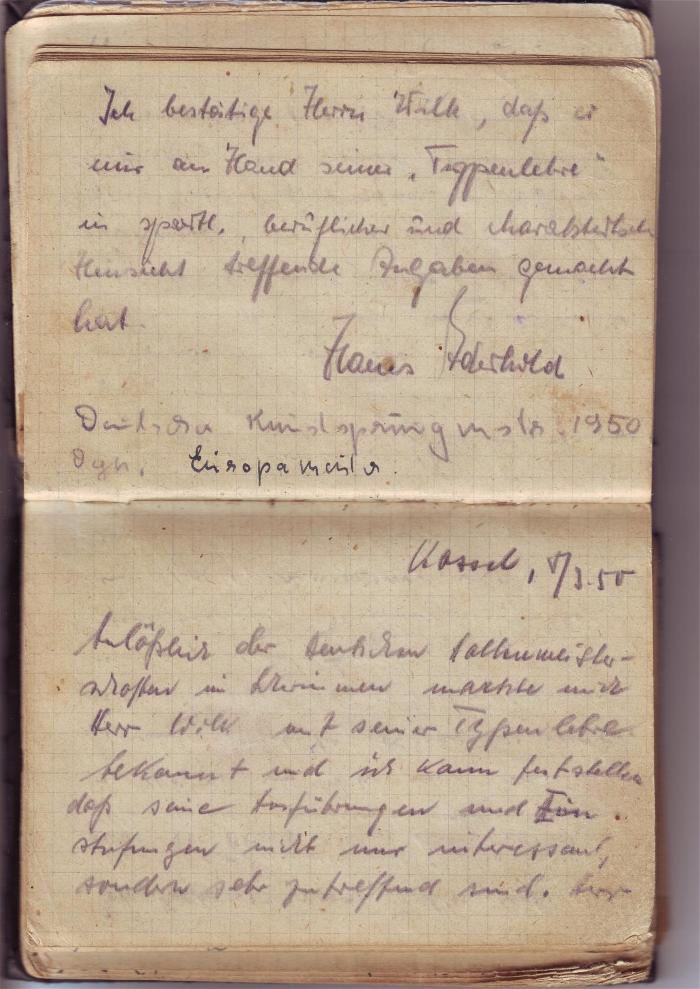 Ich bestätige Herrn Wilk, daß er
mir an Hand seiner „Typenlehre"
in sportl., beruflicher und charakterlicher
Hinsicht treffende Angaben gemacht
hat.
Hans Aderhold
Deutscher Kunstspringmstr. 1950
Dgn. Europameister.
Kassel, 5/3.50
Anläßlich der Deutschen Hallenmeister-
schaften im Schwimmen machte mich
Herr Wilk mit seiner Typenlehre
bekannt und ich kann feststellen
daß seine Ausführungen und Ein
stufungen nicht nur interessant,
sondern sehr zutreffend sind. Herr